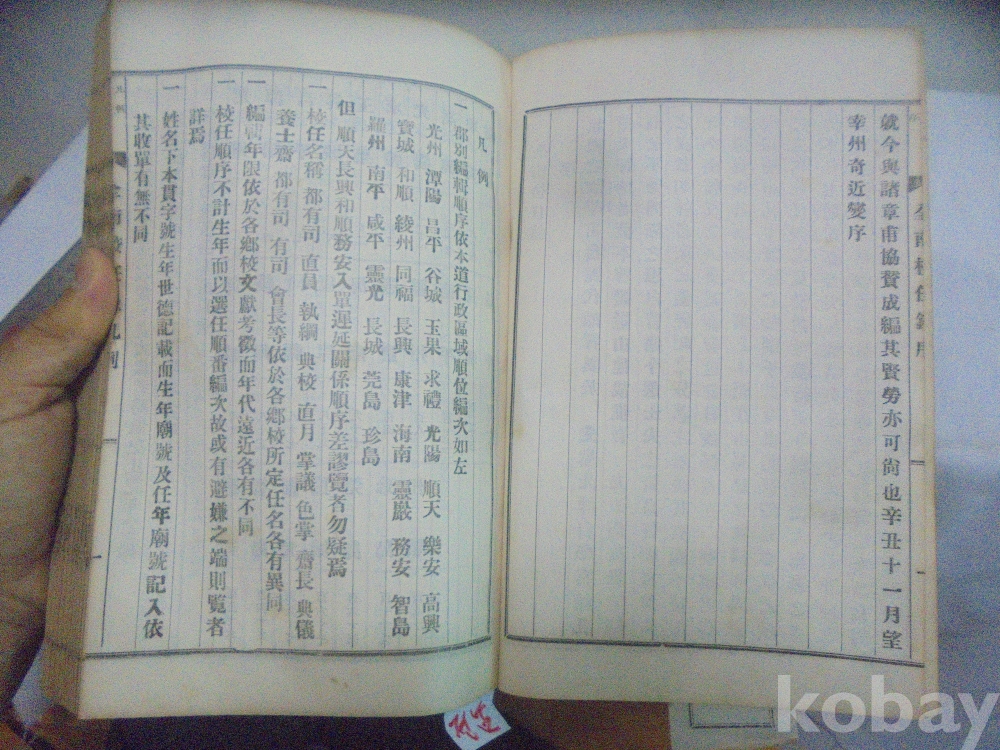 就今與諸章甫協贊成編其賢勞亦可尙也辛丑十一月望
幸州奇近燮序
凡例
一 郡別編輯順序依本道行政區域順位編次如左
光州 潭陽 昌平 谷城 玉果 求禮 光陽 順天 樂安 高興
寶城 和順 綾州 同福 長興 康津 海南 靈巖 務安 智島
羅州 南平 咸平 靈光 長城 莞島 珍島
但 順天長興和順務安入單遲延關係順序差謬覽者勿疑焉
一 校任名稱 都有司 直員 執綱 典校 直月 掌議 色掌 齋長 典儀
養士齋 都有司 有司 會長等依於各鄕校所定任名各有異同
一 編輯年限依於各鄕校文獻考徵而年代遠近各有不同
一 校任順序不計生年而以選任順番編次故或有避嫌之端則覽者
詳焉
一 姓名下本貫字號生年世德記載而生年廟號及任年廟號記入依
其收單有無不同
kobay